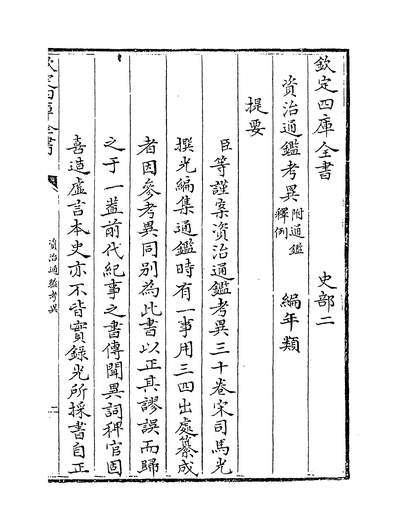 欽定四庫全書 史部二
資治通鑑考異附通鑑釋例 編年類
提要
臣等謹案資治通鑑考異三十卷宋司馬光
撰光編集通鑑時有一事用三四出處纂成
者因參考異同別為此書以正其謬誤而歸
之于一葢前代紀事之書傳聞異詞稗官固
喜造虛言本史亦不皆實錄光所採書自正
欽定四庫全書
資治通鑑考異